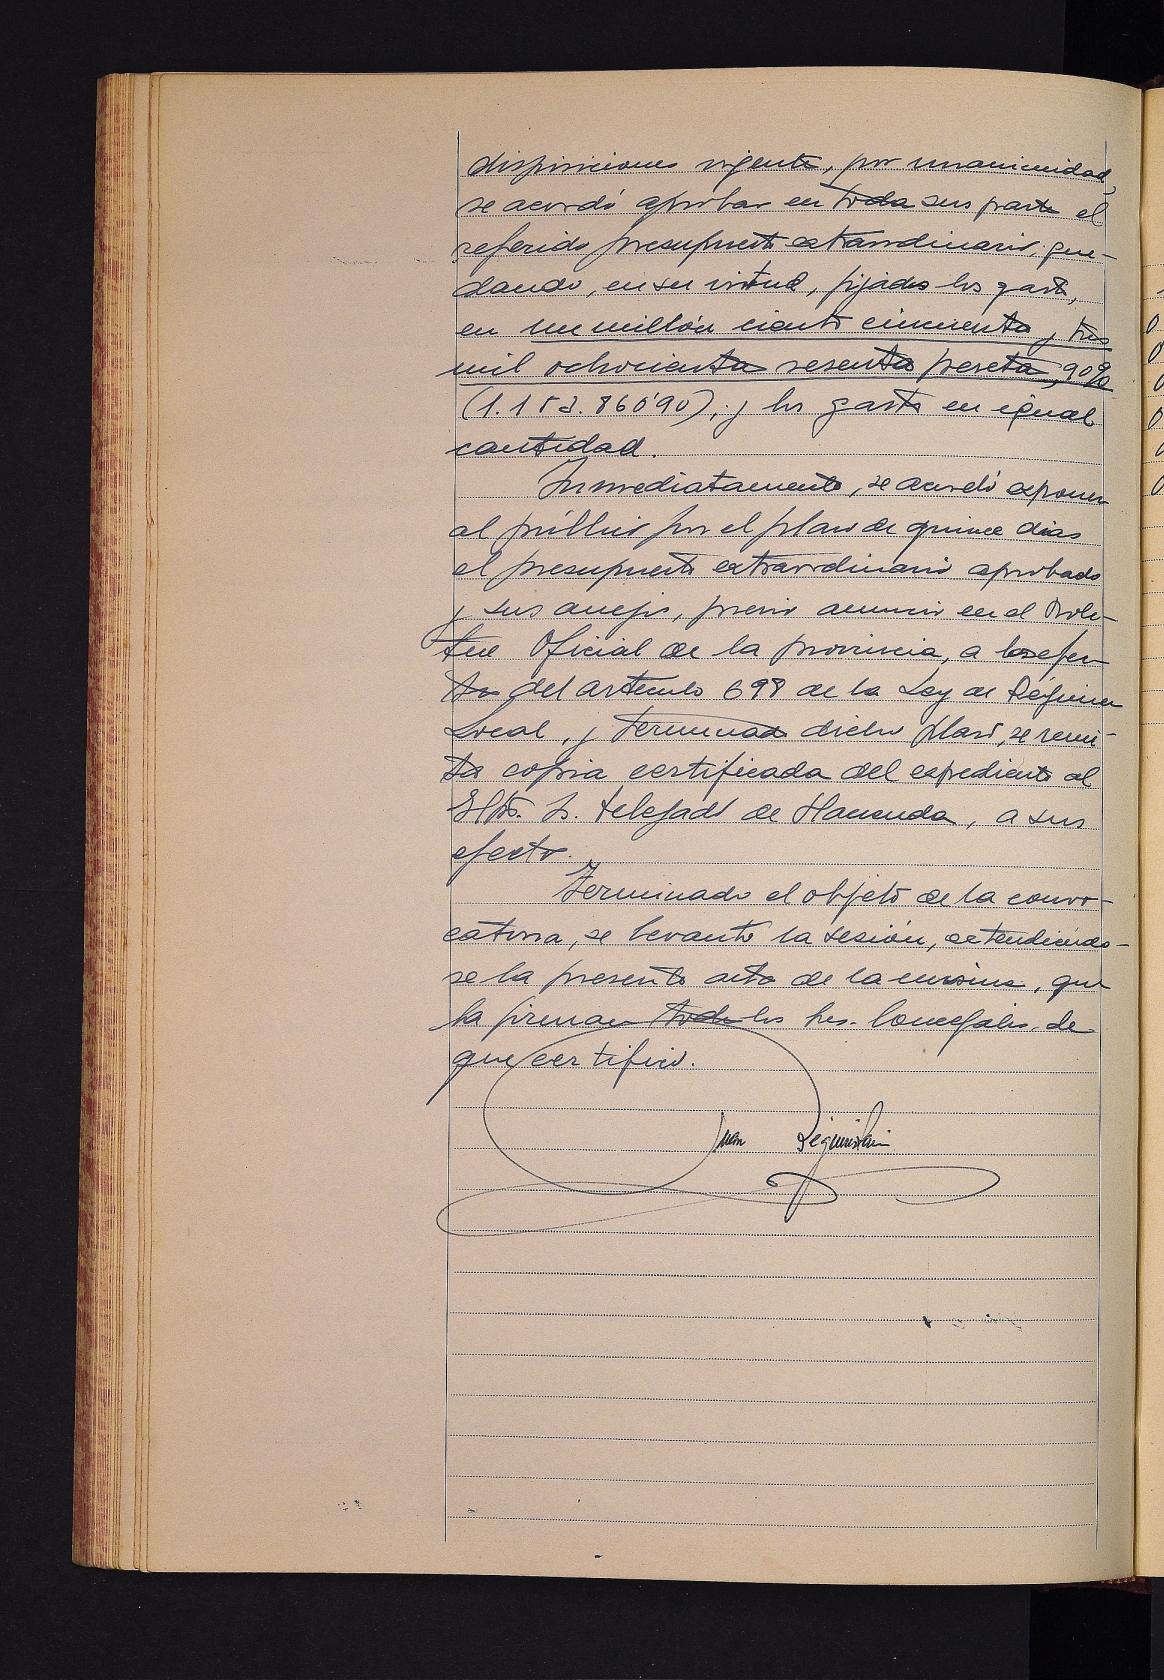 disposiciones vigentes, por unanimidad,
se acordó aprobar en todas sus partes el
referido presupuesto extraordinario, que-
dando, en su virtud, fijados los gastos,
en un millón ciento cincuenta y tres
mil ochocientas sesenta pesetas, 90%
(1.153.860'90), y los gastos en igual
cantidad.
Inmediatamente, se acordó exponer
al público por el plazo de quince dias
el presupuesto extraordinario aprobado
y sus anejos, previo anuncio en el Bole-
tín Oficial de la provincia, a los efec-
tos del artículo 698 de la Ley de Régimen
Local, y terminado dicho plazo, se remi-
ta copia certificada del expediente al
Iltmo. Sr. Delegado de Hacienda, a sus
efectos.
Terminado el objeto de la convo-
catoria, se levantó la sesión, extendiéndo-
se la presente acta de la misma, que
la firman todos los Sres. Concejales, de
que certifico.
Juan